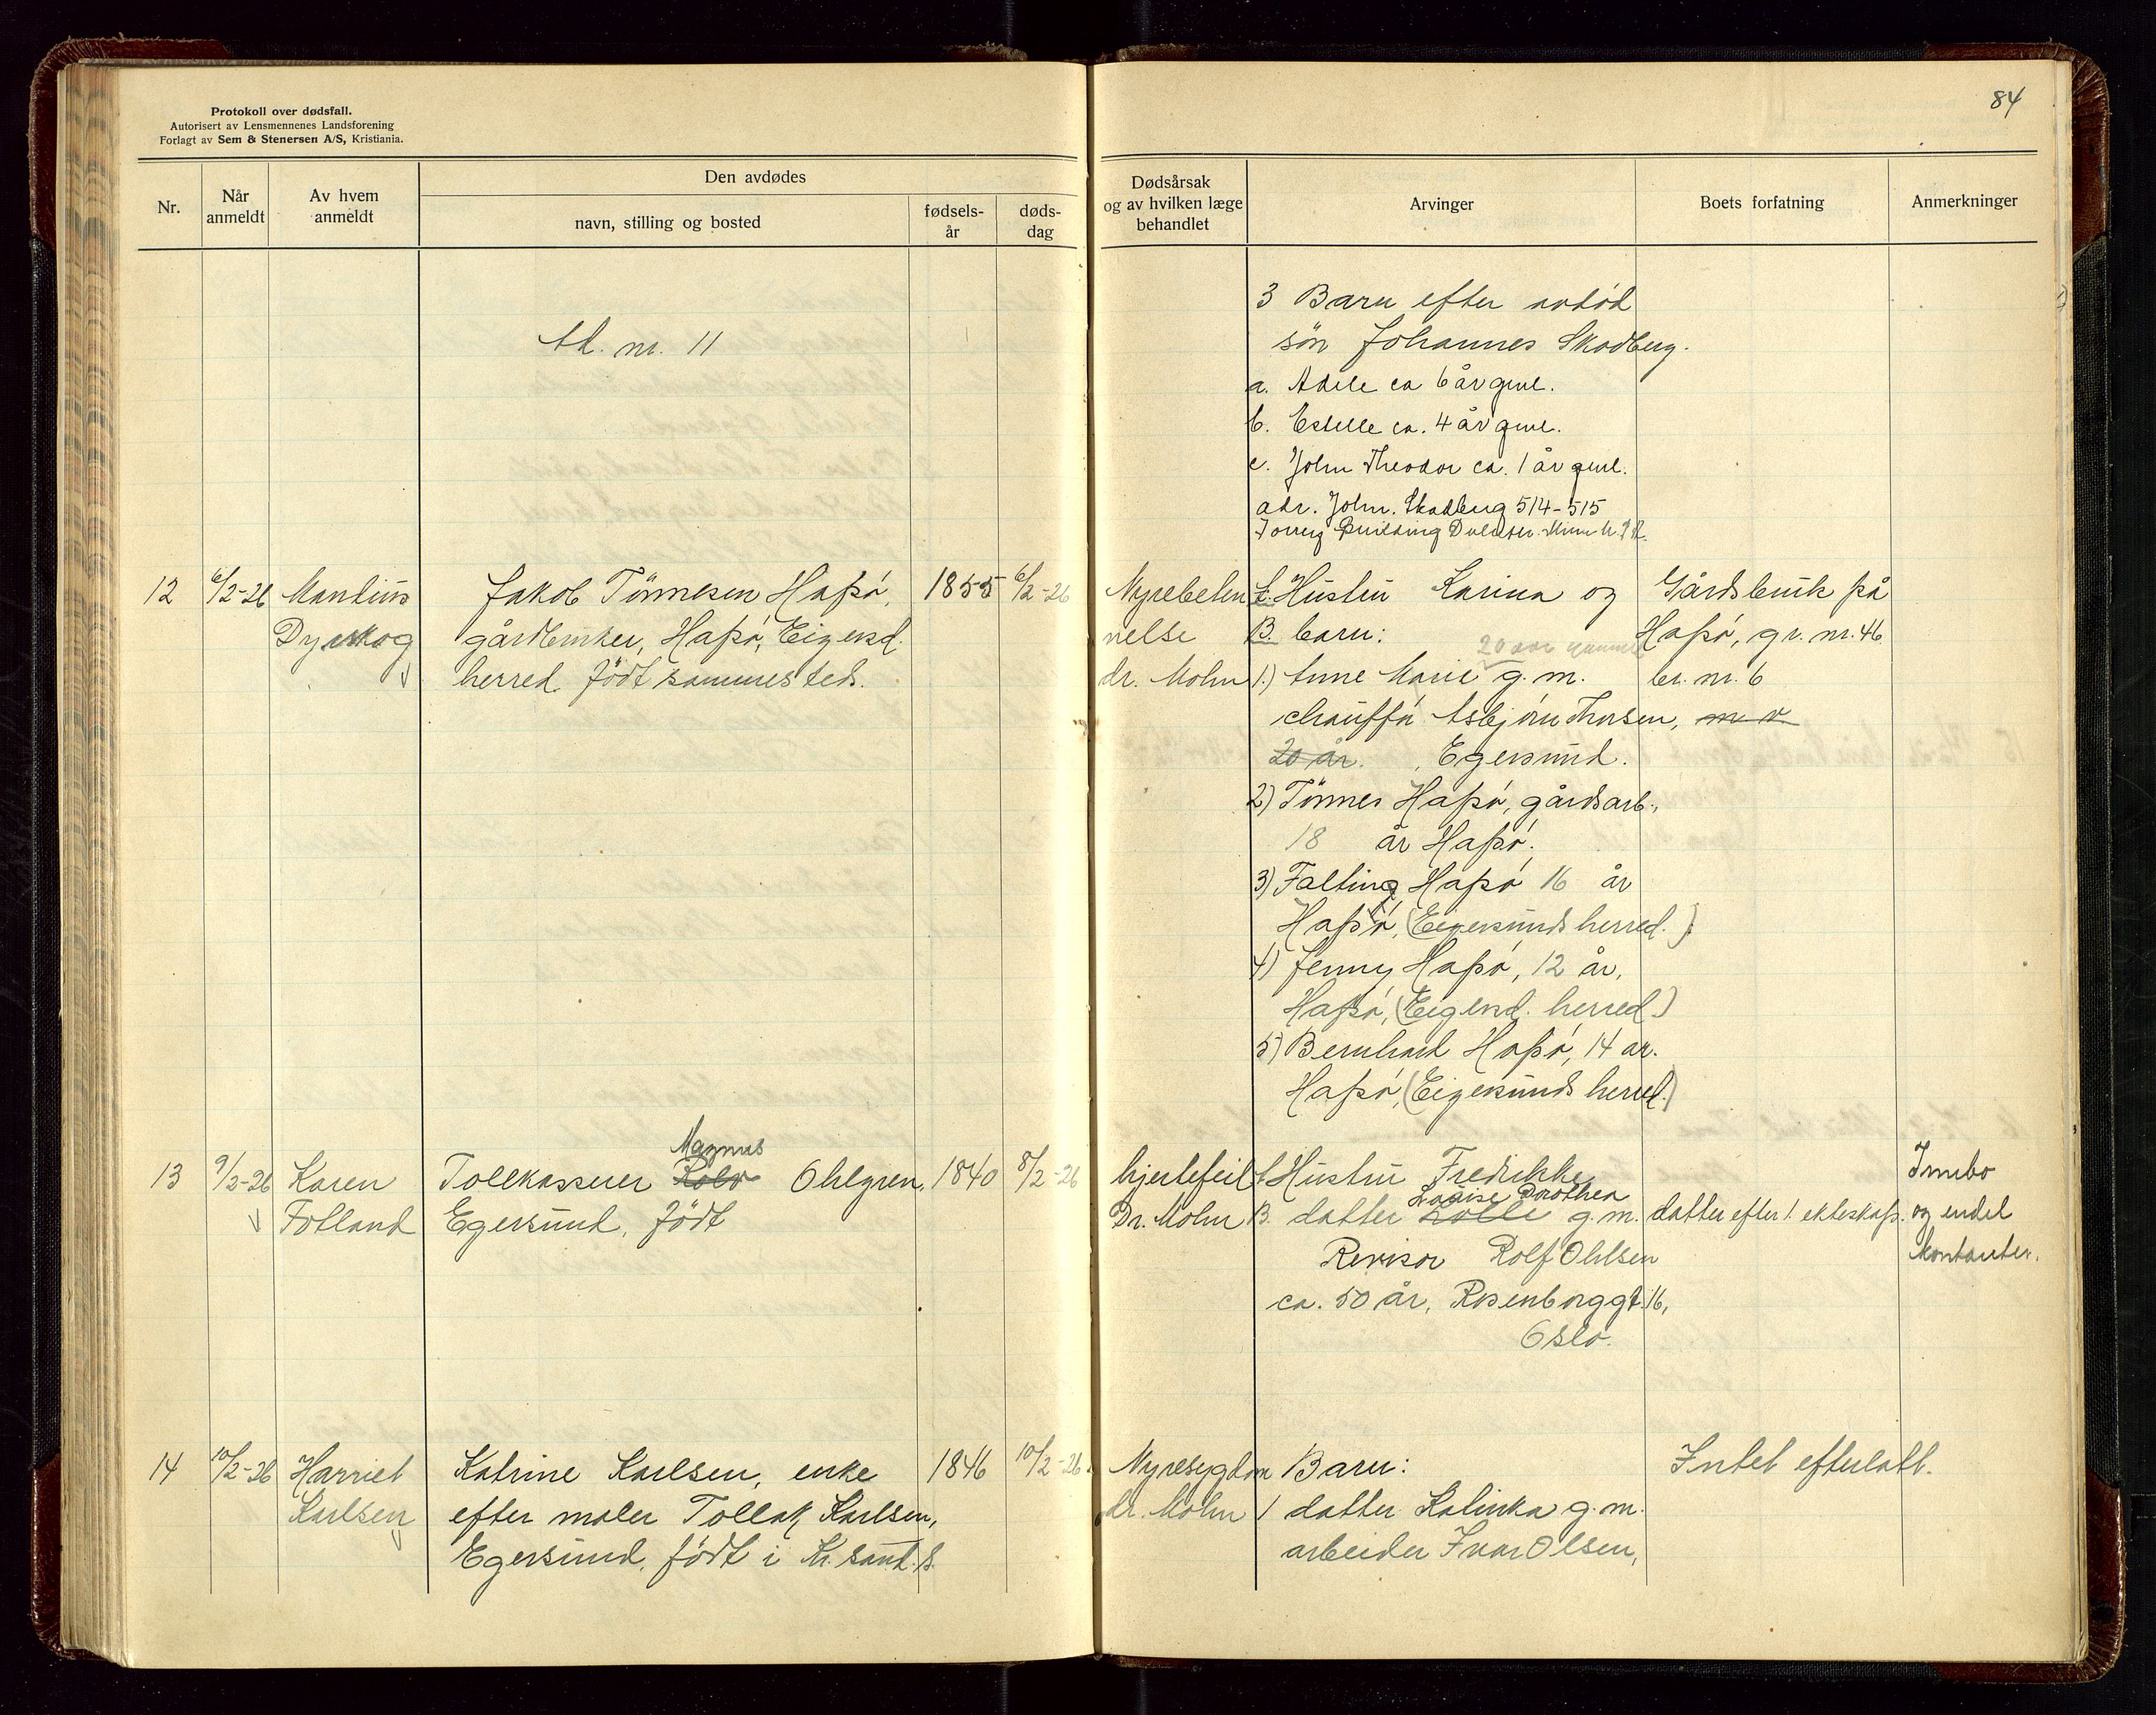 84
Protokoll over dødsfall.
Autorisert av Lensmennenes Landsforening
Forlagt av Sem & Stenersen A/S, Kristiania.
Nr.
Når anmeldt
Av hvem anmeldt
Den avdødes
navn, stilling og bosted
fødsels-år
døds-dag
Dødsårsak og av hvilken læge behandlet
Arvinger
Boets forfatning
Anmerkninger
Ad. nr. 11
3 Barn efter avdöd
sön Johannes Skadberg.
a. Adele ca 6 år gml.
b. Estelle ca. 4 år gml.
c. John Theodor ca. 1 år gml.
adr. John. Skadberg 514-515
Torrey Building Minn
12
6/2-26
Mantius
Dyrskog
Jakob Tönnesen Hafsö,
gårdbruker, Hafsö, Eigersd.
herred. Födt sammesteds.
1855
6/2-26
Nyrebeten
nelse
dr. Mohn
A. Hustru Karina og
B. barn:
20 aar gammel
1.) Anne Marie g. m.
chauffør Asbjørn Thorsen,
20 år. Egersund.
2) Tönnes Hafsö, gårdsarb.,
18 år Hafsö.
3) Falting Hafsö 16 år
Hafsö, (Eigersunds herred.)
4) Jenny Hafsö, 12 år,
Hafsö, (Eigersd. herred.)
5) Bernhard Hafsö, 14 ar.
Hafsö, (Eigersunds herred.)
Gårdsbruk på
Hafsö, gr. nr. 46
br. nr. 6
13
9/2-26
Karen
Fotland
Magnus
Tollkasserer Ohlgren,
Egersund, födt
1840
8/2-26
hjertefeil
Dr. Mohn
A Hustru Fredrikke
Louise Dorothea
B. datter g. m.
Revisor Rolf Ohlsen
ca. 50 år, Rosenborggt. 16,
Oslo.
datter efter 1. ekteskap.
Innbo
og endel
kontanter.
14
10/2-26
Harriet
Karlsen
Katrine Karlsen, enke
efter maler Tollak Karlsen,
Egersund, födt i Kr.sand. S.
1846
10/2-26.
Nyresygdom
dr. Mohn
Barn:
1 datter Kalinka g. m.
arbeider Ivar Olsen,
Intet efterlatt.